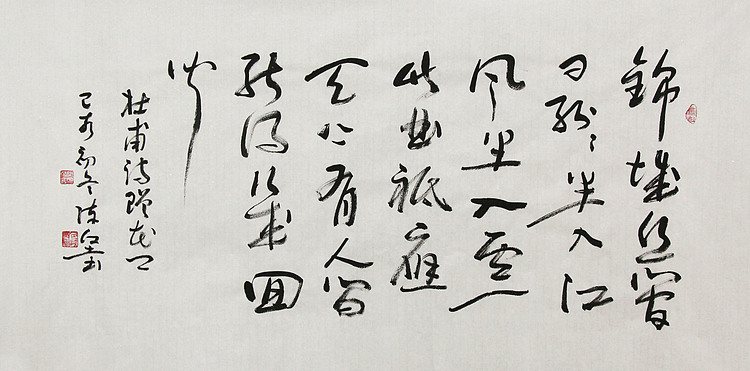 錦城絲管
日紛〻半入江
風半入雲
此曲祇應
天上有人間
能得幾回
聞
杜甫詩贈花卿
己亥初冬陳